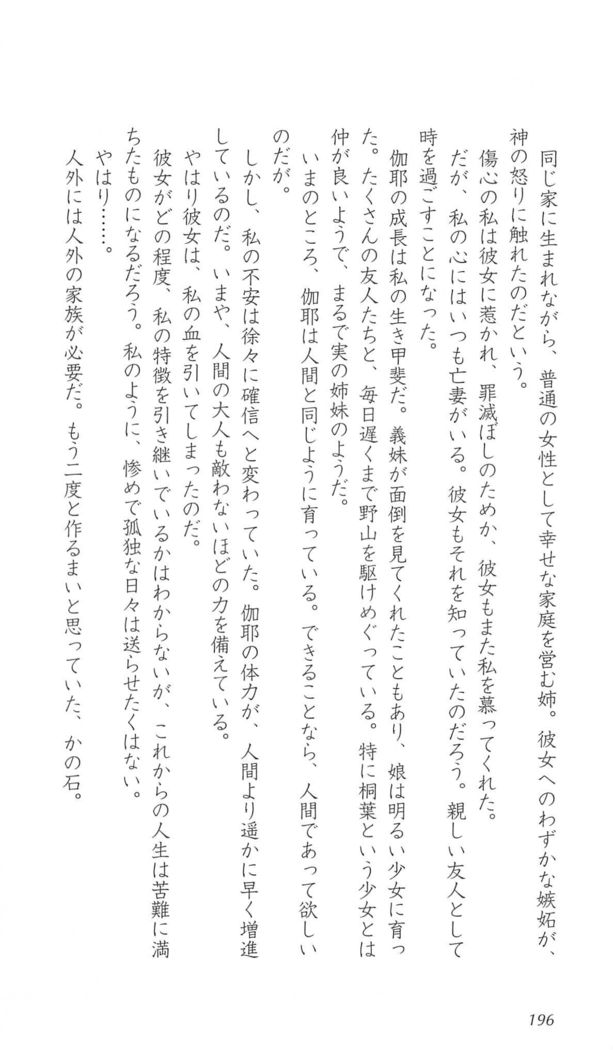 同じ家に生まれながら、普通の女性として幸せな家庭を営む姉。彼女へのわずかな嫉妬が、
神の怒りに触れたのだという。
傷心の私は彼女に惹かれ、罪滅ぼしのためか、彼女もまた私を慕ってくれた。
だが、私の心にはいつも亡妻がいる。彼女もそれを知っていたのだろう。親しい友人として
時を過ごすことになった。
伽耶の成長は私の生き甲斐だ。義妹が面倒を見てくれたこともあり、娘は明るい少女に育っ
た。たくさんの友人たちと、毎日遅くまで野山を駆けめぐっている。特に桐葉という少女とは
仲が良いようで、まるで実の姉妹のようだ。
いまのところ、伽耶は人間と同じように育っている。できることなら、人間であって欲しい
のだが。
しかし、私の不安は徐々に確信へと変わっていた。伽耶の体力が、人間より遥かに早く増進
しているのだ。いまや、人間の大人も敵わないほどの力を備えている。
やはり彼女は、私の血を引いてしまったのだ。
彼女がどの程度、私の特徴を引き継いでいるかはわからないが、これからの人生は苦難に満
ちたものになるだろう。私のように、惨めで孤独な日々は送らせたくはない。
やはり……。
人外には人外の家族が必要だ。もう二度と作るまいと思っていた、かの石。
196